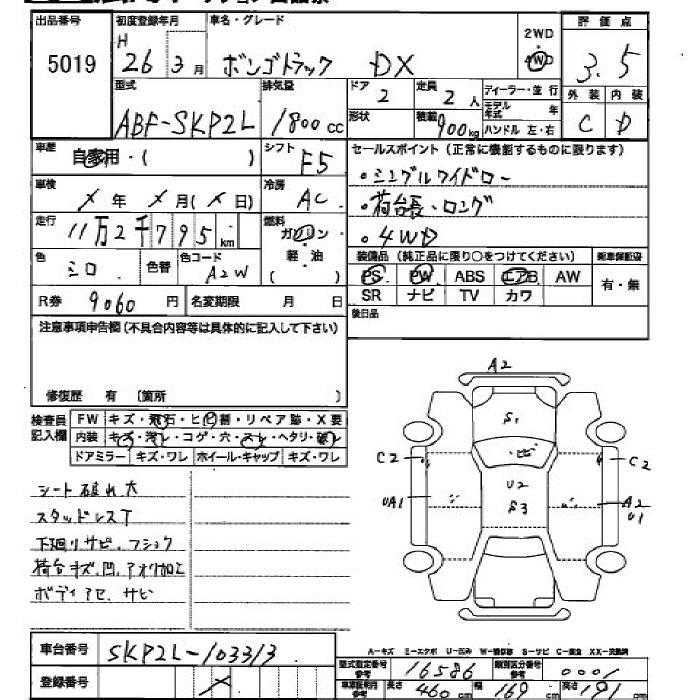 出品番号 5019
初度登録年月 H 26年 3月
車名・グレード ボンゴトラック DX
2WD・4WD
評価点 3.5
型式 ABF-SKP2L
排気量 1800cc
ドア 2
定員 2人
ディーラー・並行
モデル年式 年
形状
積載 900kg
ハンドル 左・右
外装 C
内装 D
車歴 自家用・( )
シフト F5
セールスポイント (正常に機能するものに限ります)
・シングルワイドロー
・荷台長・ロング
・4WD
車検 X年 X月(X日)
冷房 AC
走行 11万2千795km
燃料 ガソリン・軽油( )
色 シロ
色替
色コード A2W
装備品 (純正品に限り○をつけてください)
PS PW ABS エアB AW
SR ナビ TV カワ
新車保証書 有・無
R券 9060円
名変期限 月 日
後日品
注意事項申告欄(不具合内容等は具体的に記入して下さい)
修復歴 有 〔箇所 〕
検査員記入欄
FW キズ・飛石・ヒビ割・リペア跡・X要
内装 キズ・汚レ・コゲ・穴・スレ・ヘタリ・破レ
ドアミラー キズ・ワレ ホイール・キャップ キズ・ワレ
シート破れ大
スタッドレスT
下廻リサビ、フショク
荷台キズ、凹、アオリ加工
ボディアセ、サビ
A2
S1
・ヒビ
C2
C2
U2
S3
UA1
A2
U1
A-キズ E-エクボ U-凹ミ W-補修跡 S-サビ C-腐食 XX-交換済
車台番号 SKP2L-103313
登録番号 X
型式指定番号 参考 16586
類別区分番号 参考 0001
車庫証明用 参考 長さ 460cm 幅 169cm 高さ 191cm